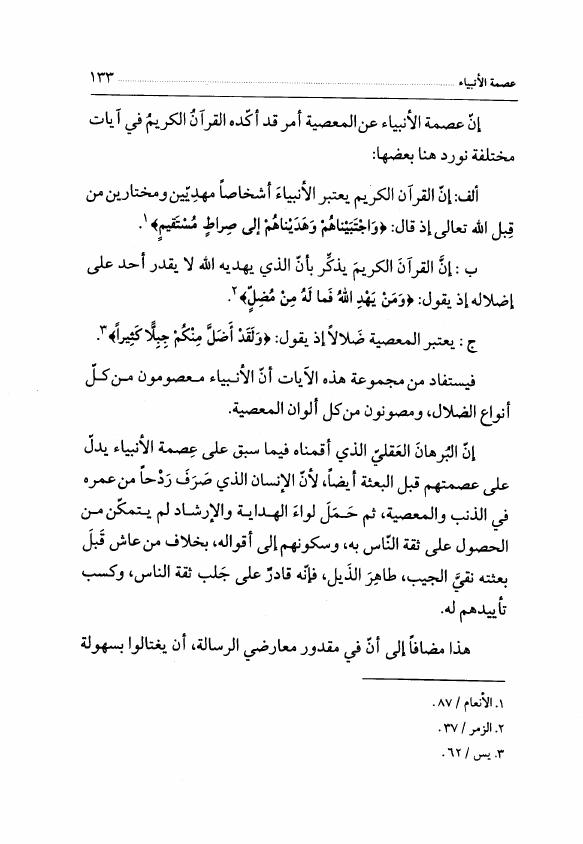 عصمة الأنبياء ........................................ ١٣٣
إنّ عصمة الأنبياء عن المعصية أمر قد أكّده القرآنُ الكريمُ في آيات
مختلفة نورد هنا بعضها:
ألف: إنّ القرآن الكريم يعتبر الأنبياءَ أشخاصاً مهديّين ومختارين من
قِبل الله تعالى إذ قال: ﴿وَاجْتَبَيْناهُمْ وَهَدَيْناهُمْ إلى صِراطٍ مُسْتَقيمٍ﴾١.
ب : إنَّ القرآنَ الكريمَ يذكِّر بأنّ الذي يهديه الله لا يقدر أحد على
إضلاله إذ يقول: ﴿وَمَنْ يَهْدِ اللهُ فَما لَهُ مِنْ مُضِلٍّ﴾٢.
ج : يعتبر المعصية ضَلالاً إذ يقول: ﴿وَلَقَدْ أَضَلَّ مِنْكُمْ جِبِلًّا كَثيراً﴾٣.
فيستفاد من مجموعة هذه الآيات أنّ الأنبياء معصومون من كلّ
أنواع الضلال، ومصونون من كل ألوان المعصية.
إنّ البُرهانَ العَقليّ الذي أقمناه فيما سبق على عِصمة الأنبياء يدلّ
على عصمتهم قبل البعثة أيضاً، لأنّ الإنسان الذي صَرَفَ رَدْحاً من عمره
في الذنب والمعصية، ثم حَمَلَ لواءَ الهداية والإرشاد لم يتمكّن من
الحصول على ثقة النّاس به، وسكونهم إلى أقواله، بخلاف من عاش قَبلَ
بعثته نقيَّ الجيب، طاهِرَ الذَيل، فإنّه قادرٌ على جَلب ثقة الناس، وكسب
تأييدهم له.
هذا مضافاً إلى أنّ في مقدور معارضي الرسالة، أن يغتالوا بسهولة
١. الأنعام / ٨٧.
٢. الزمر / ٣٧.
٣. يس / ٦٢.